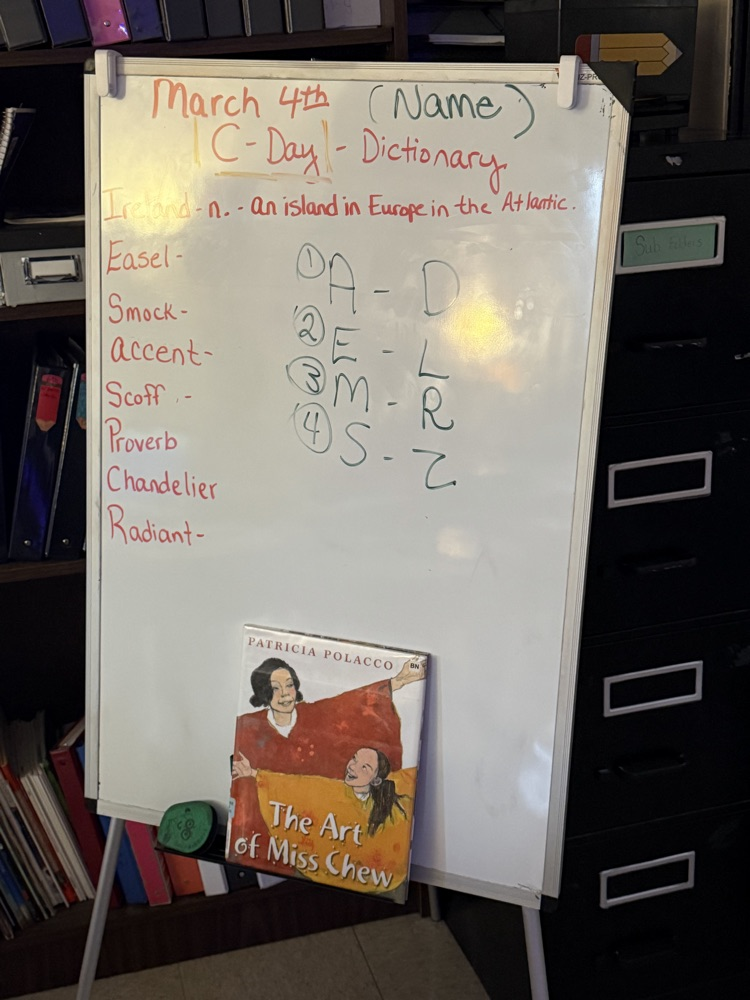 March 4th (Name)
C-Day - Dictionary
Ireland - n. - an island in Europe in the Atlantic.
Easel -
Smock -
accent -
Scoff -
Proverb
Chandelier
Radiant -
① A - D
② E - L
③ M - R
④ S - Z
Sub Folders
PATRICIA POLACCO
BN
The Art
of Miss Chew